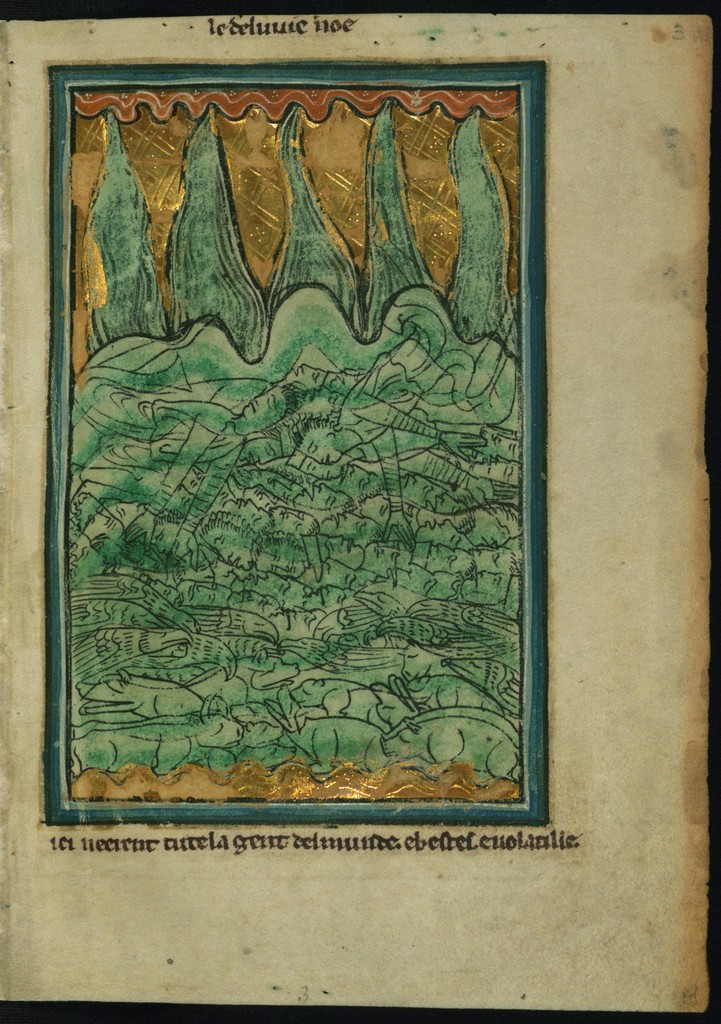 3
le deluuie noe
ici neerent tute la gent del munde. e bestes. e uolatilie.
3